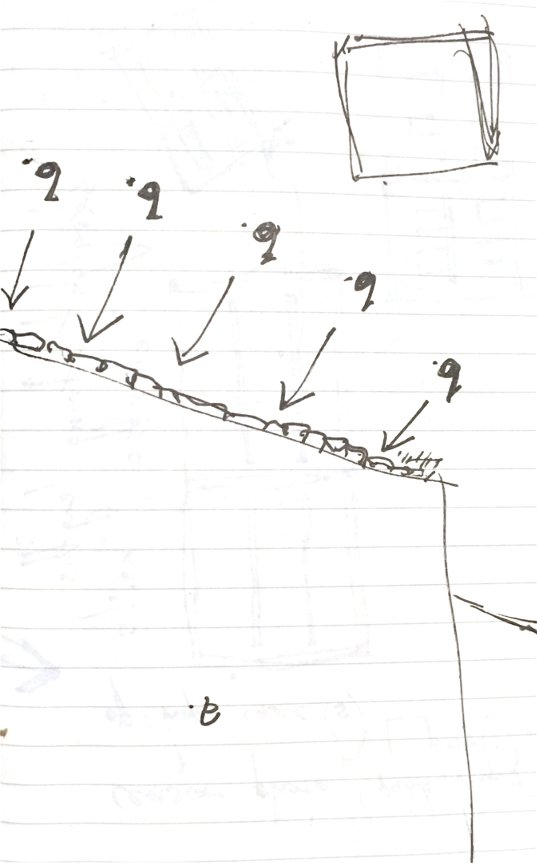 ·q
·q
·q
·q
·q